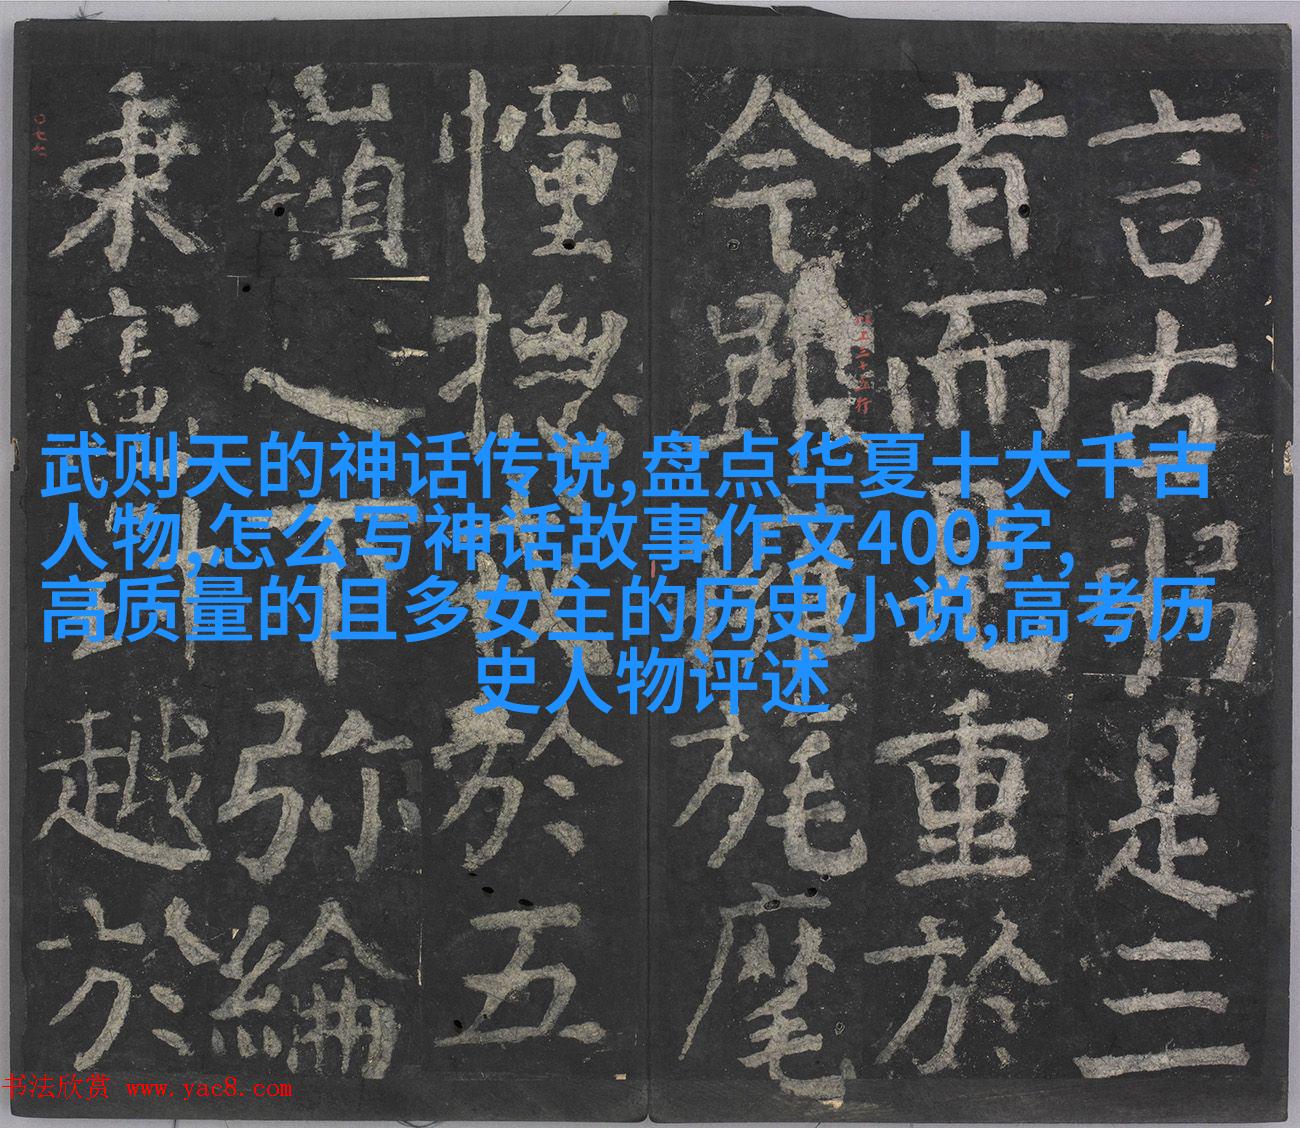 武则天的神话传说,盘点华夏十大千古
人物,怎么写神话故事作文400字,
高质量的且多女主的历史小说,高考历
史人物评述
言古是三
者而重於
今旄麾
憧撫於五
嶺之下弥綸
秉越於
书法欣赏 www.yac8.com